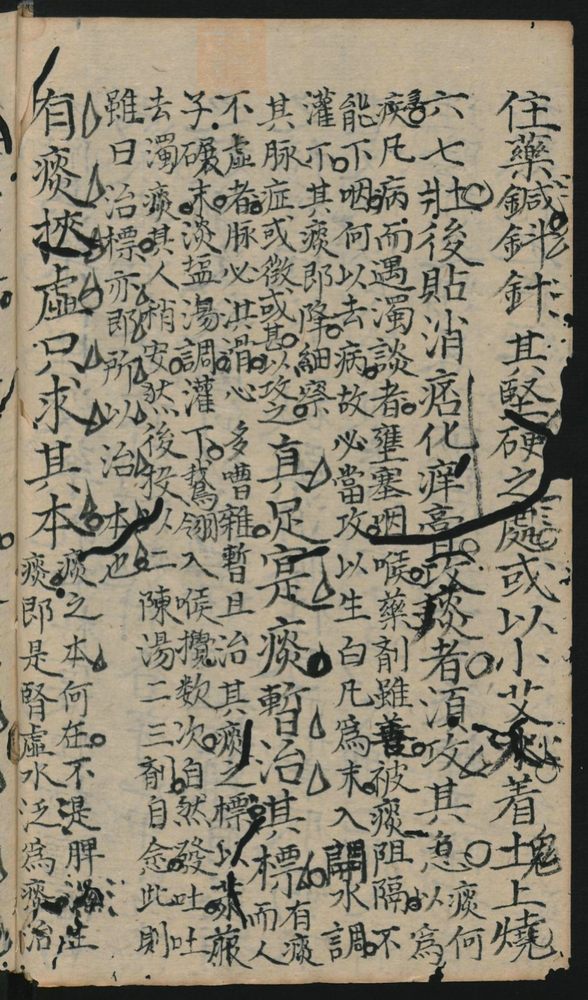 住藥鍼斜針其堅硬之處或以小艾着土上燒
六七壯後貼消痞化痒膏攻痰者須攻其急以痰為何
痰凡病而遇濁談者壅塞咽喉藥劑雖善被痰阻隔不
能下咽何以去病故必當攻以生白凡為末入開水調
灌下其痰即降細察
其脉症或微或甚以攻之真足寔痰暫治其標而有人痰
不虛者脉必洪滑心多嘈雜暫且治其痰之標以
子碾末淡盐湯調灌下鵝翎入喉攪数次自然發吐吐
去濁痰其人稍安然後投以二陳湯二三劑自愈此則
雖曰治標亦即所以治本也
有痰挾虛只求其本痰之本何在不是脾
痰即是腎虛水泛為痰治